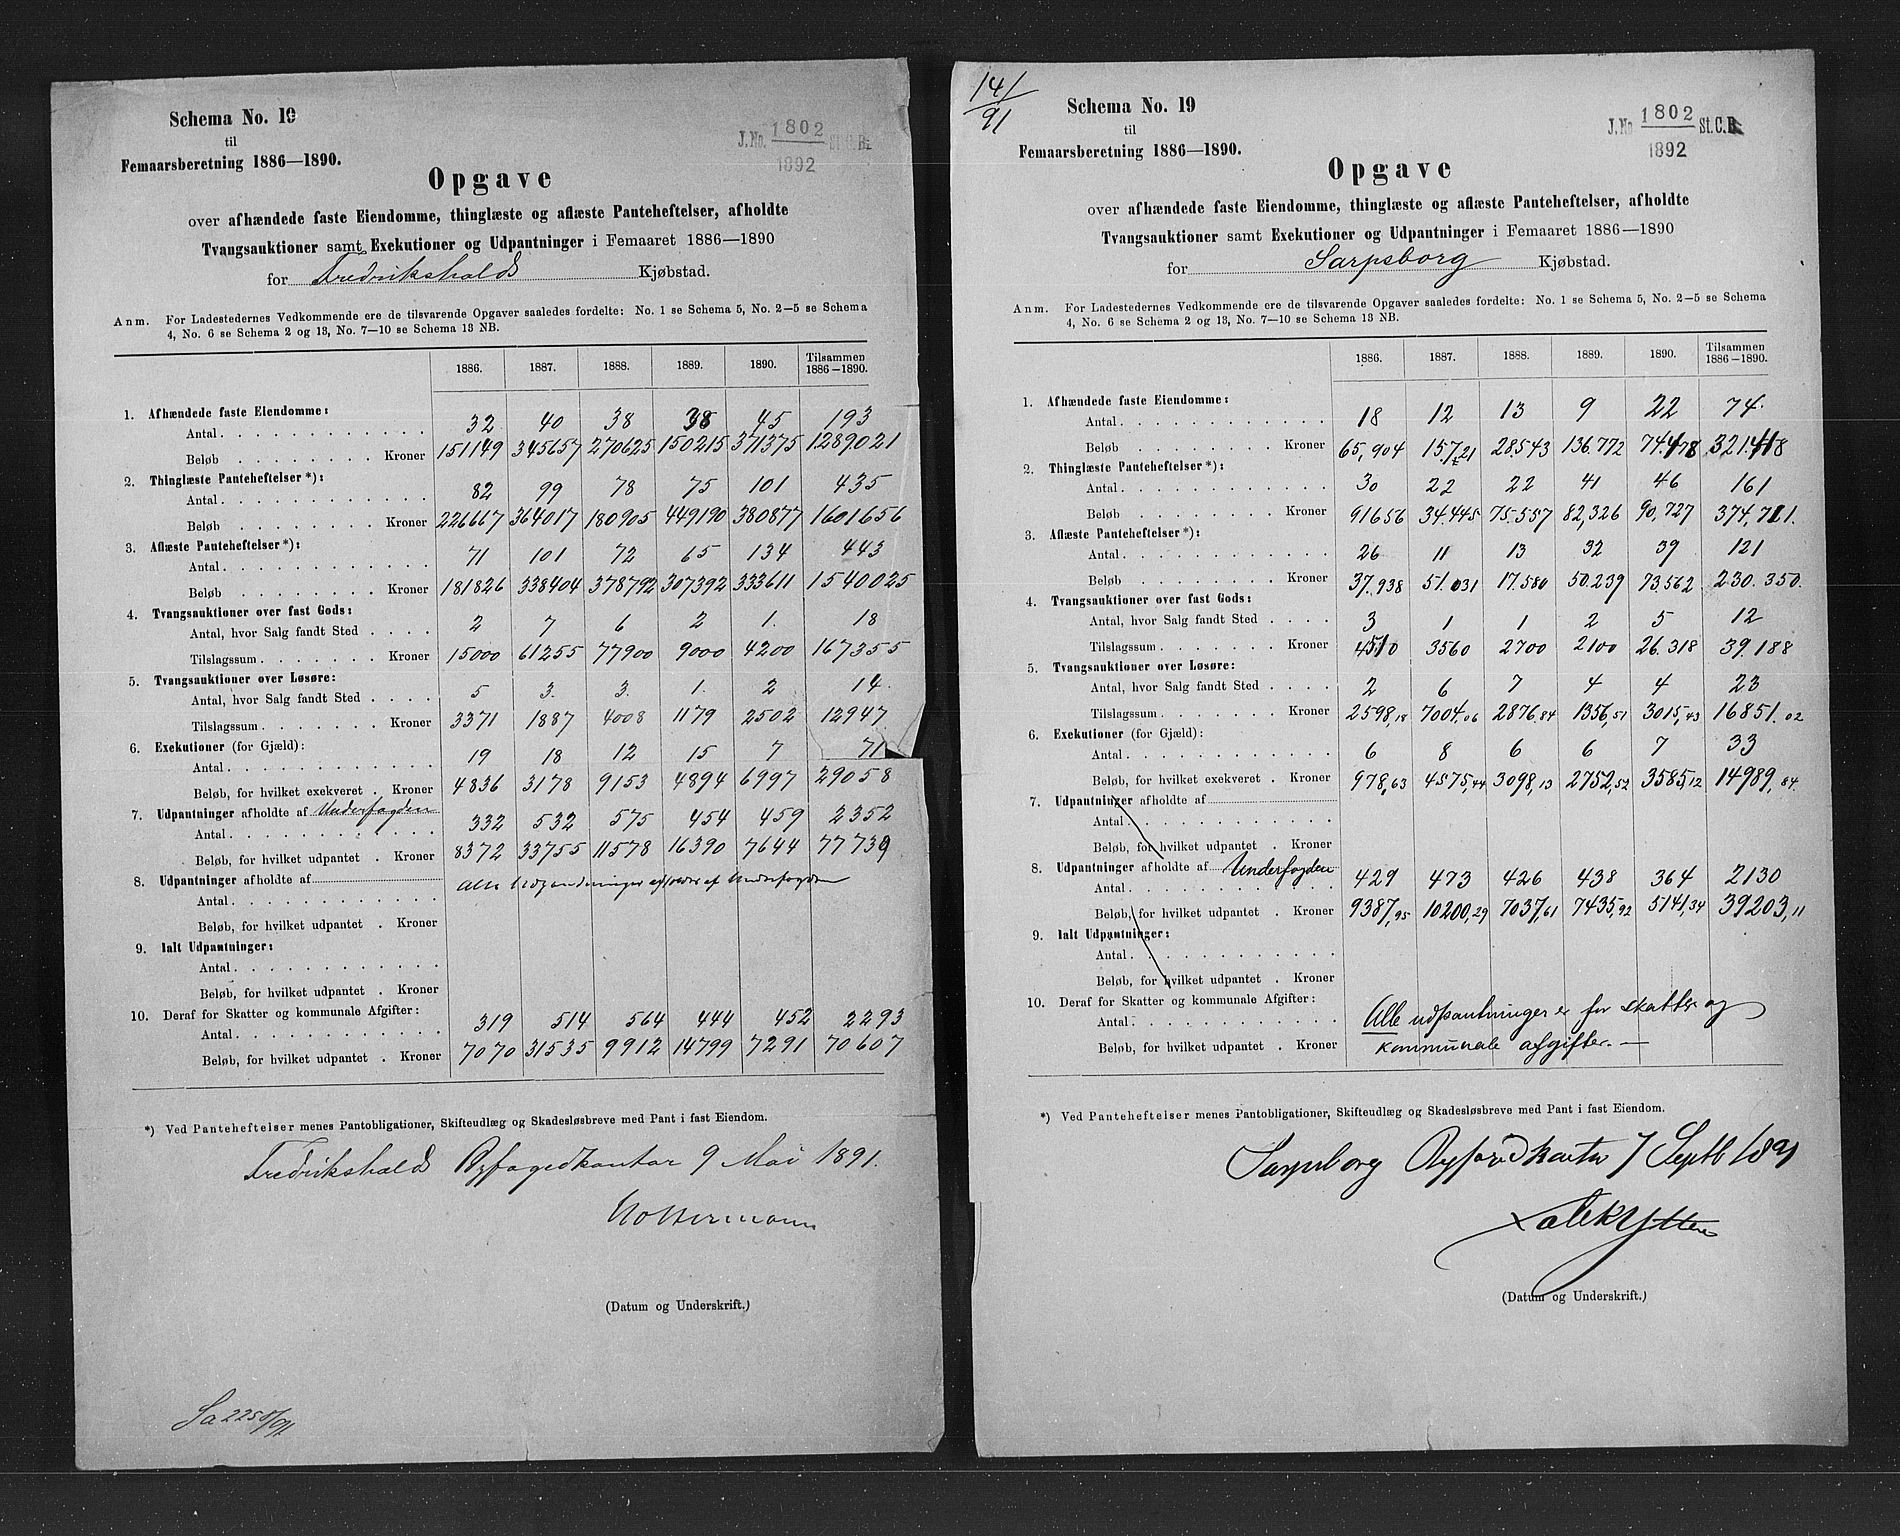 Schema No. 19
til
Femaarsberetning 1886—1890.
J.No. 1802 St.C.B.
1892
Opgave
over afhændede faste Eiendomme, thinglæste og aflæste Panteheftelser, afholdte
Tvangsauktioner samt Exekutioner og Udpantninger i Femaaret 1886—1890
for Fredrikshalds Kjøbstad.
Anm. For Ladestedernes Vedkommende ere de tilsvarende Opgaver saaledes fordelte: No. 1 se Schema 5, No. 2—5 se Schema
4, No. 6 se Schema 2 og 13, No. 7—10 se Schema 13 NB.
1886. 1887. 1888. 1889. 1890. Tilsammen 1886—1890.
1. Afhændede faste Eiendomme:
Antal 32 40 38 38 45 193
Beløb Kroner 151149 345657 270625 150215 371375 1289021
2. Thinglæste Panteheftelser*):
Antal 82 99 78 75 101 435
Beløb Kroner 226667 364017 180905 449190 380877 1601656
3. Aflæste Panteheftelser*):
Antal 71 101 72 65 134 443
Beløb Kroner 181826 338404 378792 307392 333611 1540025
4. Tvangsauktioner over fast Gods:
Antal, hvor Salg fandt Sted 2 7 6 2 1. 18
Tilslagssum Kroner 15000 61255 77900 9000 4200 167355
5. Tvangsauktioner over Løsøre:
Antal, hvor Salg fandt Sted 5 3. 3. 1. 2 14.
Tilslagssum Kroner 3371 1887 4008 1179 2502 12947
6. Exekutioner (for Gjæld):
Antal 19 18 12 15 7 71
Beløb, for hvilket exekveret Kroner 4836 3178 9153 4894 6997 29058
7. Udpantninger afholdte af Underfogden
Antal 332 532 575 454 459 2352
Beløb, for hvilket udpantet Kroner 8372 33755 11578 16390 7644 77739
8. Udpantninger afholdte af
Alle Udpantninger af Underfogden
Antal
Beløb, for hvilket udpantet Kroner
9. Ialt Udpantninger:
Antal
Beløb, for hvilket udpantet Kroner
10. Deraf for Skatter og kommunale Afgifter:
Antal 319 514 564 444 452 2293
Beløb, for hvilket udpantet Kroner 7070 31535 9912 14799 7291 70607
*) Ved Panteheftelser menes Pantobligationer, Skifteudlæg og Skadesløsbreve med Pant i fast Eiendom.
Fredrikshalds Byfogedkontor 9 Mai 1891.
(Datum og Underskrift.)
14/91
Schema No. 19
til
Femaarsberetning 1886—1890.
J.No 1802 St.C.B.
1892
Opgave
over afhændede faste Eiendomme, thinglæste og aflæste Panteheftelser, afholdte
Tvangsauktioner samt Exekutioner og Udpantninger i Femaaret 1886—1890
for Sarpsborg Kjøbstad.
Anm. For Ladestedernes Vedkommende ere de tilsvarende Opgaver saaledes fordelte: No. 1 se Schema 5, No. 2—5 se Schema
4, No. 6 se Schema 2 og 13, No. 7—10 se Schema 13 NB.
1886. 1887. 1888. 1889. 1890. Tilsammen 1886—1890.
1. Afhændede faste Eiendomme:
Antal 18 12 13 9 22 74.
Beløb Kroner 65,904 15.721 28.543 136.772 74.478 321.418
2. Thinglæste Panteheftelser*):
Antal 30 22 22 41 46 161
Beløb Kroner 91656 34.445 75.557 82,326 90,727 374,711.
3. Aflæste Panteheftelser*):
Antal 26 11 13 32 39 121
Beløb Kroner 37.938 51.031 17.580 50.239 73.562 230.350.
4. Tvangsauktioner over fast Gods:
Antal, hvor Salg fandt Sted 3 1 1 2 5 12
Tilslagssum Kroner 4510 3560 2700 2100 26.318 39.188
5. Tvangsauktioner over Løsøre:
Antal, hvor Salg fandt Sted 2 6 7 4 4 23
Tilslagssum Kroner 2598,18 7004,06 2876,84 1356,51 3015,43 16851.02
6. Exekutioner (for Gjæld):
Antal 6 8 6 6 7 33
Beløb, for hvilket exekveret Kroner 978,63 4575,44 3098,13 2752,52 3585,12 14989,84
7. Udpantninger afholdte af
Antal
Beløb, for hvilket udpantet Kroner
8. Udpantninger afholdte af Underfogden
Antal 429 473 426 438 364 2130
Beløb, for hvilket udpantet Kroner 9387,95 10200,29 7037,61 7435,92 5141,34 39203,11
9. Ialt Udpantninger:
Antal
Beløb, for hvilket udpantet Kroner
10. Deraf for Skatter og kommunale Afgifter:
Antal
Alle udpantninger er for skatter og
Beløb, for hvilket udpantet Kroner
kommunale afgifter. —
*) Ved Panteheftelser menes Pantobligationer, Skifteudlæg og Skadesløsbreve med Pant i fast Eiendom.
Sarpsborg Byfogedkontor 7 Septb 1891
(Datum og Underskrift.)